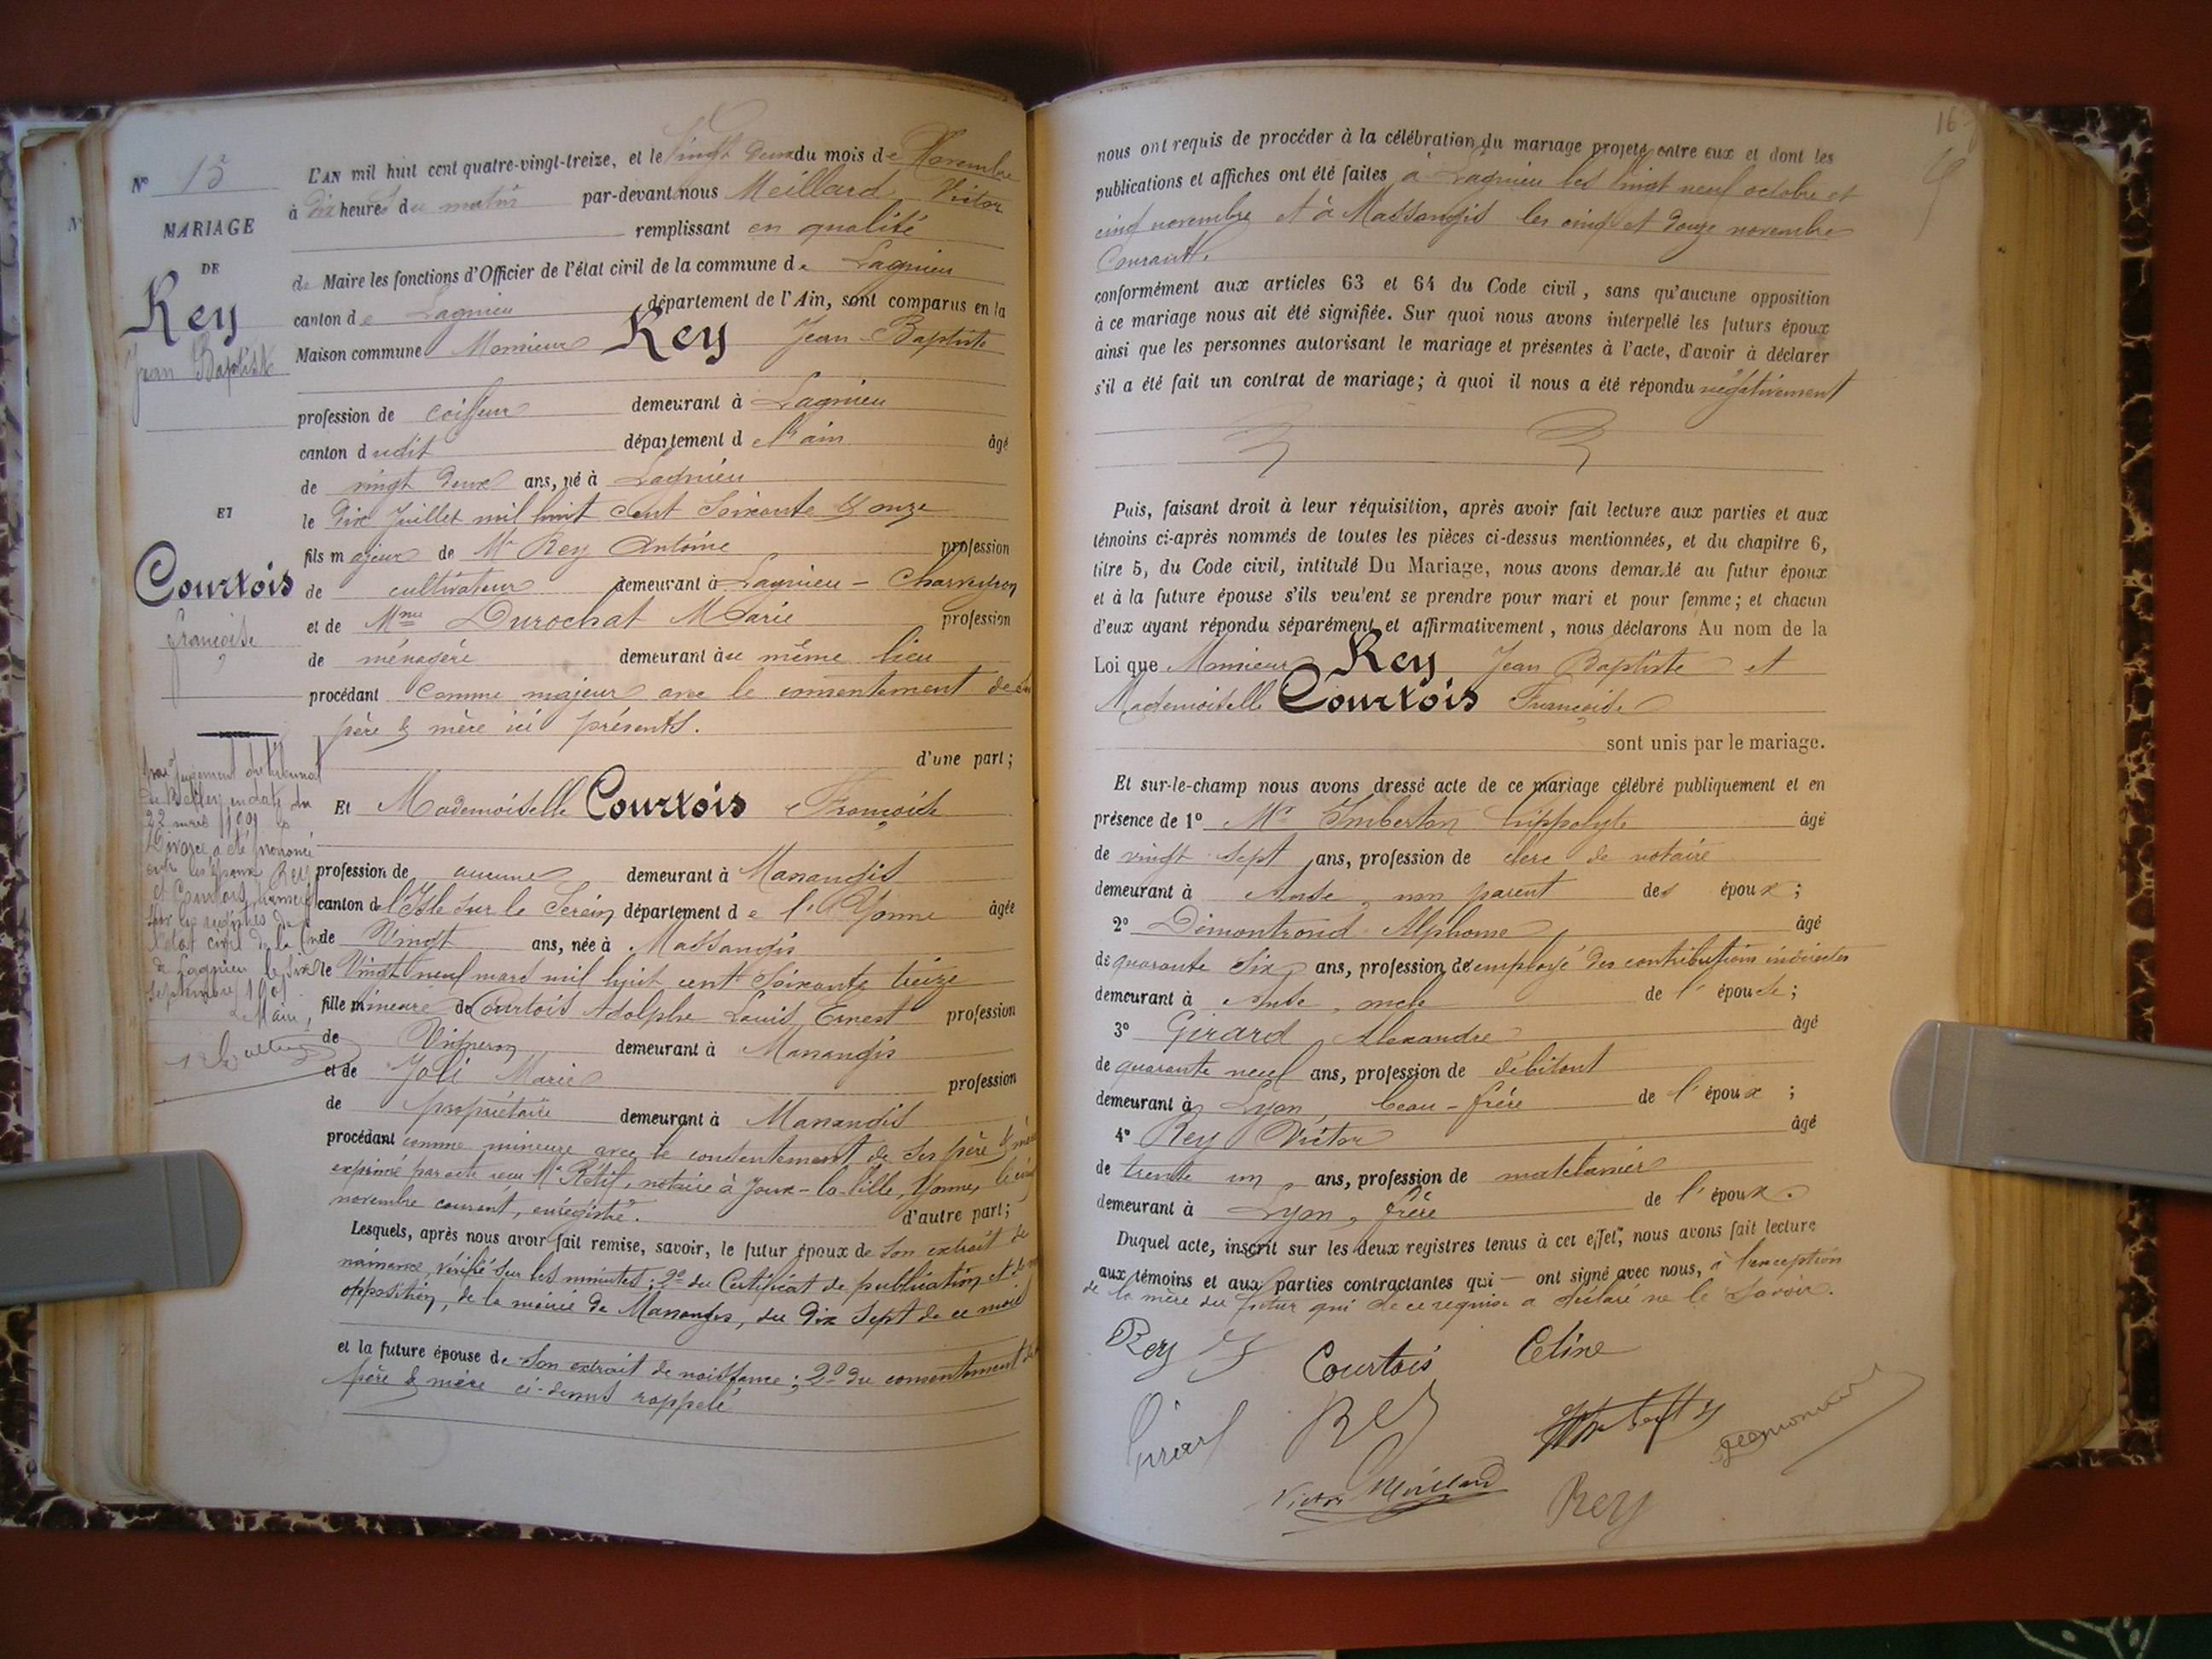 N° 15
MARIAGE
DE
Rey
Jean Baptiste
ET
Courtois
françoise
Par Jugement du tribunal
de Belley en date du
22 mars 1901 le
Divorce a été prononcé
entre les époux Rey
et Courtois, transcrit
sur les registres de
l'état civil de la Cne
de Lagnieu le six
septembre 1901
Le Maire,
L'AN mil huit cent quatre-vingt-treize, et le Vingt deux du mois de Novembre
à dix heures du matin par-devant nous Meillard Victor
remplissant en qualité
de Maire les fonctions d'Officier de l'état civil de la commune de Lagnieu
canton de Lagnieu département de l'Ain, sont comparus en la
Maison commune Monsieur Rey Jean-Baptiste
profession de coiffeur demeurant à Lagnieu
canton dudit département de l'ain âgé
de vingt deux ans, né à Lagnieu
le dix Juillet mil huit cent soixante & onze
fils majeur de Mr Rey Antoine profession
de cultivateur demeurant à Lagnieu - Charveyron
et de Mme Durochat Marie profession
de ménagère demeurant au même lieu
procédant comme majeur avec le consentement de ses
père & mère ici présents.
d'une part;
Et Mademoiselle Courtois Françoise
profession de aucune demeurant à Massangis
canton de l'Isle sur le Serein département de l'Yonne âgée
de Vingt ans, née à Massangis
le Vingt neuf mars mil huit cent soixante treize
fille mineure de Courtois Adolphe Louis Ernest profession
de Vigneron demeurant à Massangis
et de Joli Marie profession
de propriétaire demeurant à Massangis
procédant comme mineure avec le consentement de ses père & mère
exprimé par acte reçu Me Rétif, notaire à Joux-la-Ville, Yonne, le cinq
novembre courant, enrégistré. d'autre part;
Lesquels, après nous avoir fait remise, savoir, le futur époux de son extrait de
naissance, vérifié sur les minutes; 2° du Certificat de publication et de non
opposition, de la mairie de Massangis, du dix sept de ce mois
et la future épouse de son extrait de naissance; 2° du consentement de ses
père & mère ci-dessus rappelé
nous ont requis de procéder à la célébration du mariage projeté entre eux et dont les
publications et affiches ont été faites à Lagnieu les vingt neuf octobre et
cinq novembre et à Massangis les cinq et douze novembre
Courant.
conformément aux articles 63 et 64 du Code civil, sans qu'aucune opposition
à ce mariage nous ait été signifiée. Sur quoi nous avons interpellé les futurs époux
ainsi que les personnes autorisant le mariage et présentes à l'acte, d'avoir à déclarer
s'il a été fait un contrat de mariage; à quoi il nous a été répondu négativement
Puis, faisant droit à leur réquisition, après avoir fait lecture aux parties et aux
témoins ci-après nommés de toutes les pièces ci-dessus mentionnées, et du chapitre 6,
titre 5, du Code civil, intitulé Du Mariage, nous avons demandé au futur époux
et à la future épouse s'ils veulent se prendre pour mari et pour femme; et chacun
d'eux ayant répondu séparément et affirmativement, nous déclarons Au nom de la
Loi que Monsieur Rey Jean Baptiste et
Mademoiselle Courtois Françoise
sont unis par le mariage.
Et sur-le-champ nous avons dressé acte de ce mariage célébré publiquement et en
présence de 1° Mr Imberton hippolyte âgé
de vingt sept ans, profession de clerc de notaire
demeurant à non parent des époux;
2° Démontrond Alphonse âgé
de quarante six ans, profession d'employé des contributions indirectes
demeurant à oncle de l'épouse;
3° Girard Alexandre âgé
de quarante neuf ans, profession de débitant
demeurant à Lyon, beau-frère de l'époux;
4° Rey Victor âgé
de trente un ans, profession de matelassier
demeurant à Lyon, frère de l'époux.
Duquel acte, inscrit sur les deux registres tenus à cet effet, nous avons fait lecture
aux témoins et aux parties contractantes qui — ont signé avec nous, à l'exception
de la mère du futur qui de ce requise a déclaré ne le savoir.
Rey Courtois Céline
Girard Rey
Victor Meillard Rey